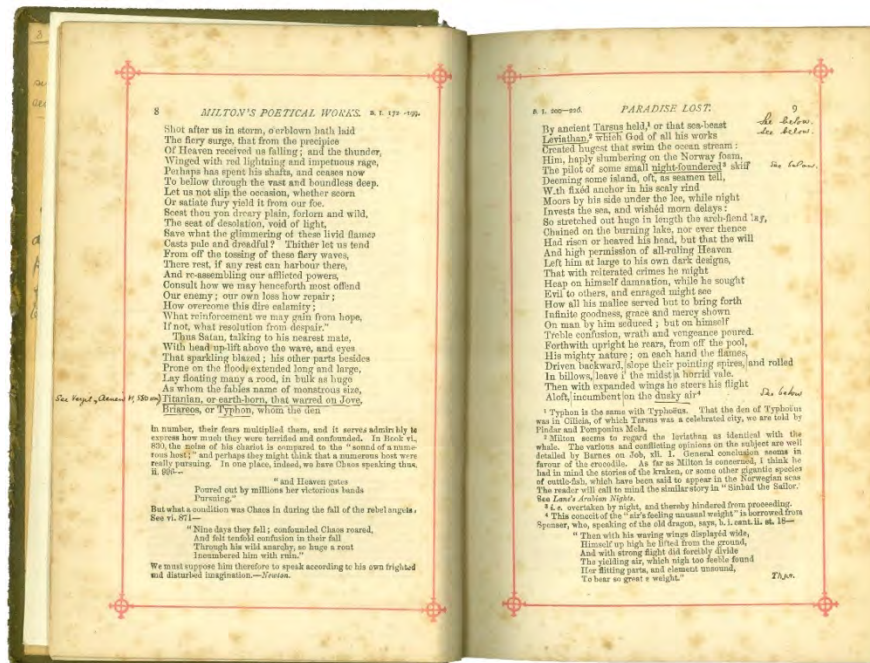 8 MILTON'S POETICAL WORKS. B. I. 172-199.
Shot after us in storm, o'erblown hath laid
The fiery surge, that from the precipice
Of Heaven received us falling; and the thunder,
Winged with red lightning and impetuous rage,
Perhaps has spent his shafts, and ceases now
To bellow through the vast and boundless deep.
Let us not slip the occasion, whether scorn
Or satiate fury yield it from our foe.
Seest thou yon dreary plain, forlorn and wild,
The seat of desolation, void of light,
Save what the glimmering of these livid flames
Casts pale and dreadful? Thither let us tend
From off the tossing of these fiery waves,
There rest, if any rest can harbour there,
And re-assembling our afflicted powers,
Consult how we may henceforth most offend
Our enemy; our own loss how repair;
How overcome this dire calamity;
What reinforcement we may gain from hope,
If not, what resolution from despair."
Thus Satan, talking to his nearest mate,
With head up-lift above the wave, and eyes
That sparkling blazed; his other parts besides
Prone on the flood, extended long and large,
Lay floating many a rood, in bulk as huge
As whom the fables name of monstrous size,
See
Titanian, or earth-born, that warred on Jove,
Briareos, or Typhon, whom the den
in number, their fears multiplied them, and it serves admirably to
express how much they were terrified and confounded. In Book vi.
830, the noise of his chariot is compared to the "sound of a nume-
rous host;" and perhaps they might think that a numerous host were
really pursuing. In one place, indeed, we have Chaos speaking thus,
ii. 996—
"and Heaven gates
Poured out by millions her victorious bands
Pursuing."
But what a condition was Chaos in during the fall of the rebel angels.
See vi. 871—
"Nine days they fell; confounded Chaos roared,
And felt tenfold confusion in their fall
Through his wild anarchy, so huge a rout
Incumbered him with ruin."
We must suppose him therefore to speak according to his own frighted
and disturbed imagination.—Newton.
B. I. 200-226. PARADISE LOST. 9
By ancient Tarsus held,1 or that sea-beast See below.
Leviathan,2 which God of all his works See below.
Created hugest that swim the ocean stream:
Him, haply slumbering on the Norway foam,
The pilot of some small night-foundered3 skiff See below.
Deeming some island, oft, as seamen tell,
With fixéd anchor in his scaly rind
Moors by his side under the lee, while night
Invests the sea, and wishéd morn delays:
So stretched out huge in length the arch-fiend lay,
Chained on the burning lake, nor ever thence
Had risen or heaved his head, but that the will
And high permission of all-ruling Heaven
Left him at large to his own dark designs,
That with reiterated crimes he might
Heap on himself damnation, while he sought
Evil to others, and enraged might see
How all his malice served but to bring forth
Infinite goodness, grace and mercy shown
On man by him seduced; but on himself
Treble confusion, wrath and vengeance poured.
Forthwith upright he rears, from off the pool,
His mighty nature; on each hand the flames,
Driven backward, slope their pointing spires, and rolled
In billows, leave i' the midst a horrid vale.
Then with expanded wings he steers his flight
Aloft, incumbent on the dusky air4 See below
1 Typhon is the same with Typhoëus. That the den of Typhoëus
was in Cilicia, of which Tarsus was a celebrated city, we are told by
Pindar and Pomponius Mela.
2 Milton seems to regard the leviathan as identical with the
whale. The various and conflicting opinions on the subject are well
detailed by Barnes on Job, xli. 1. General conclusion seems in
favour of the crocodile. As far as Milton is concerned, I think he
had in mind the stories of the kraken, or some other gigantic species
of cuttle-fish, which have been said to appear in the Norwegian seas
The reader will call to mind the similar story in "Sinbad the Sailor."
See Lane's Arabian Nights.
3 i. e. overtaken by night, and thereby hindered from proceeding.
4 This conceit of the "air's feeling unusual weight" is borrowed from
Spenser, who, speaking of the old dragon, says, b. i. cant. ii. st. 18—
"Then with his waving wings displayed wide,
Himself up high he lifted from the ground,
And with strong flight did forcibly divide
The yielding air, which nigh too feeble found
Her flitting parts, and element unsound,
To bear so great a weight." Thyer.